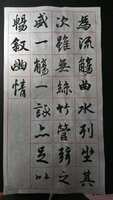 為流觴曲水列坐其
次雖無絲竹管弦之
盛一觴一詠亦足以
暢敘幽情